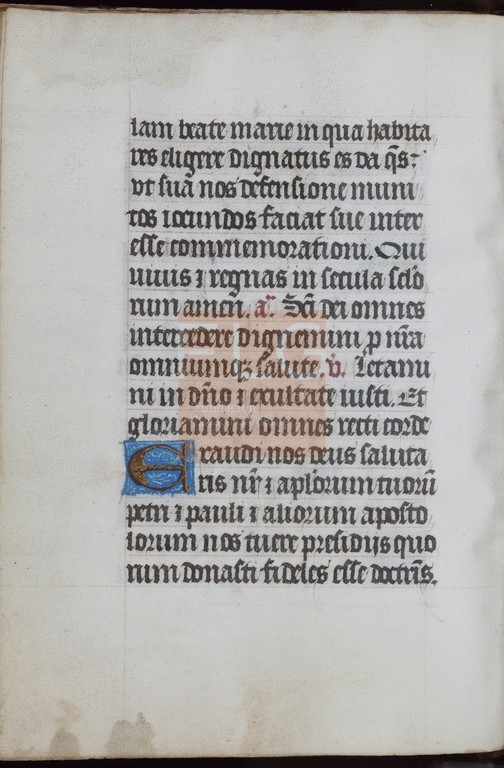 lam beate marie in qua habita
res eligere dignatus es da q̄s:
vt suā nos defensione muni
tos iocundos faciat sue inter
esse commemorationi. Qui
viuis ⁊ regnas in secula sclō
rum amen̄. a͛. Sc̄i dei omnes
intercedere dignemini ꝓ nr̄a
omniumqꝫ salute. v̄. Letami
ni in dn̄o ⁊ exultate iusti. Et
gloriamini omnes recti corde
Exaudi nos deus saluta
ris nr̄ ⁊ apl'orum tuorū
petri ⁊ pauli ⁊ aliorum aposto
lorum nos tuere presidijs quo
rum donasti fideles esse doctri̅s.